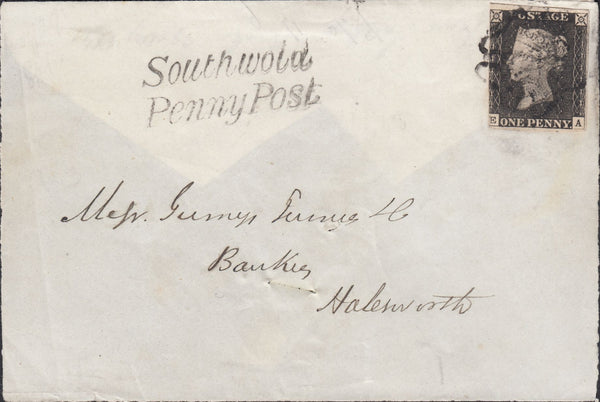 Southwold
Penny Post
POSTAGE
E ONE PENNY A
Messr. Gurneys Turner & Co
Bankers
Halesworth